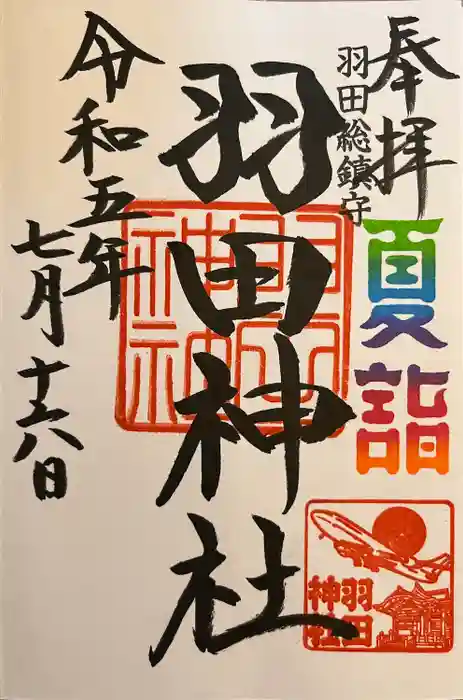 奉拝
夏詣
羽田総鎮守
羽田神社
令和五年
七月十六日
羽田
神社
羽田
神社